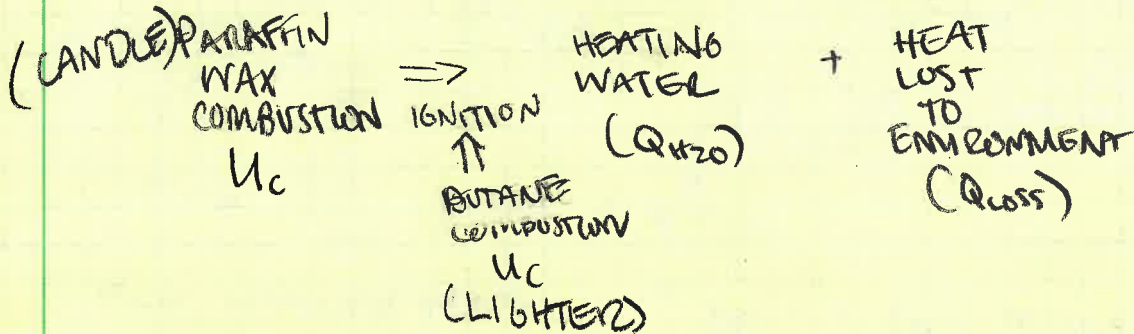 (CANDLE) PARAFFIN
WAX
COMBUSTION
Uc
⇒
IGNITION
⇑
BUTANE
COMBUSTION
Uc
(LIGHTER)
HEATING
WATER
(QH2O)
+
HEAT
LOST
TO
ENVIRONMENT
(QLOSS)